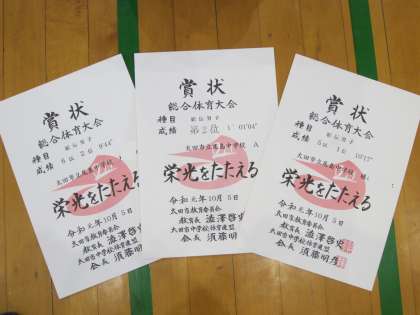 賞状
総合体育大会
種目 駅伝男子
成績 6位 2区 9'44"
栄光をたたえる
令和元年10月5日
太田市教育委員会
教育長 澁澤啓史
太田市中学校体育連盟
会長 須藤明彦
賞状
総合体育大会
種目 駅伝男子
成績 第2位 1゜01'04"
栄光をたたえる
令和元年10月5日
太田市教育委員会
教育長 澁澤啓史
太田市中学校体育連盟
会長 須藤明彦
賞状
総合体育大会
種目 駅伝男子
成績 5位 10'17"
栄光をたたえる
令和元年10月5日
太田市教育委員会
教育長 澁澤啓史
太田市中学校体育連盟
会長 須藤明彦